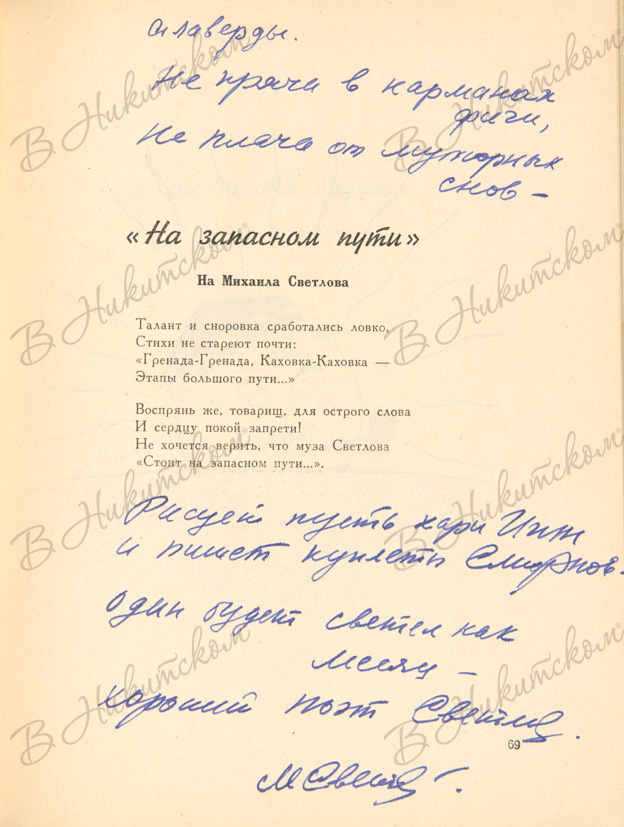 алаверды.
Не пряча в карманах
фиги,
Не плача от мужорных
снов –
«На запасном пути»
На Михаила Светлова
Талант и сноровка сработались ловко,
Стихи не стареют почти:
«Гренада-Гренада, Каховка-Каховка —
Этапы большого пути...»
Воспрянь же, товарищ, для острого слова
И сердцу покой запрети!
Не хочется верить, что муза Светлова
«Стоит на запасном пути...».
Рисует пусть хари Игин
и пишет куплеты Смирнов.
Один будет светел как
месяц –
хороший поэт Светлов.
69
М Светлов.
В Никитском
В Никитском
В Никитском
В Никитском
В Никитском
В Никитском
В Никитском
В Никитском